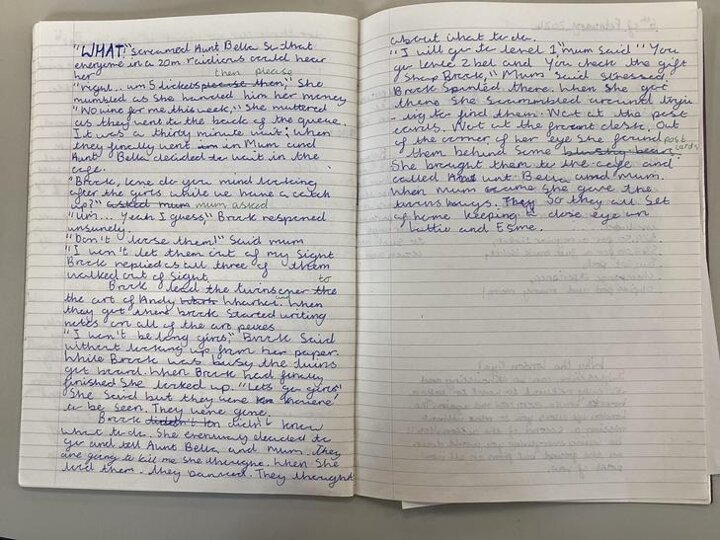 "WHAT!" Screamed Aunt Bella So that
everyone in a 20m raidious could hear
her
then please
"right... um 5 tickets please then," She
mumbled as She handed him her money
"No wine for me this week," She muttered
as they went to the back of the queue.
It was a thirty minute wait. When
they finally went in Mum and
Aunt Bella decided to wait in the
cafe.
"Brock, love do you mind looking
after the girls while we have a catch
up?" asked mum mum asked
"Um... Yeah I guess," Brock responed
unsurely.
"Don't loose them!" Said mum
"I won't let them out of my Sight
Brock replied as all three of them
walked out of Sight.
Brock lead the twins over to the
the art of Andy Wharhol. When
they got there brock Started writing
notes on all of the art peices
"I won't be long girls," Brock Said
without looking up from her paper.
While Brock was busy the twins
got board. When Brock had finally
finished She looked up. "Lets go girls"
She Said but they were no
to be seen. They were gone.
Brock didn't know
what to do. She eventually decided to
go and tell Aunt Bella and Mum. They
are going to kill me She thought. When She
told them. They panned. They thought
about what to do.
"I will go to level 1" mum Said "You
go level 2 bel and You check the gift
Shop Brock," Mum Said stressed.
Brock Spinted there. When She got
there She Scrambled around tryi
-ng to find them. Not at the post
cards. Not at the front desk. Out
of the corner of her eye She found
them behind Some post cards
She brought them to the cafe and
called Aunt Bella and mum.
When mum came She gave the
twins hugs. So they all Set
of home keeping a close eye on
Lottie and Esme.